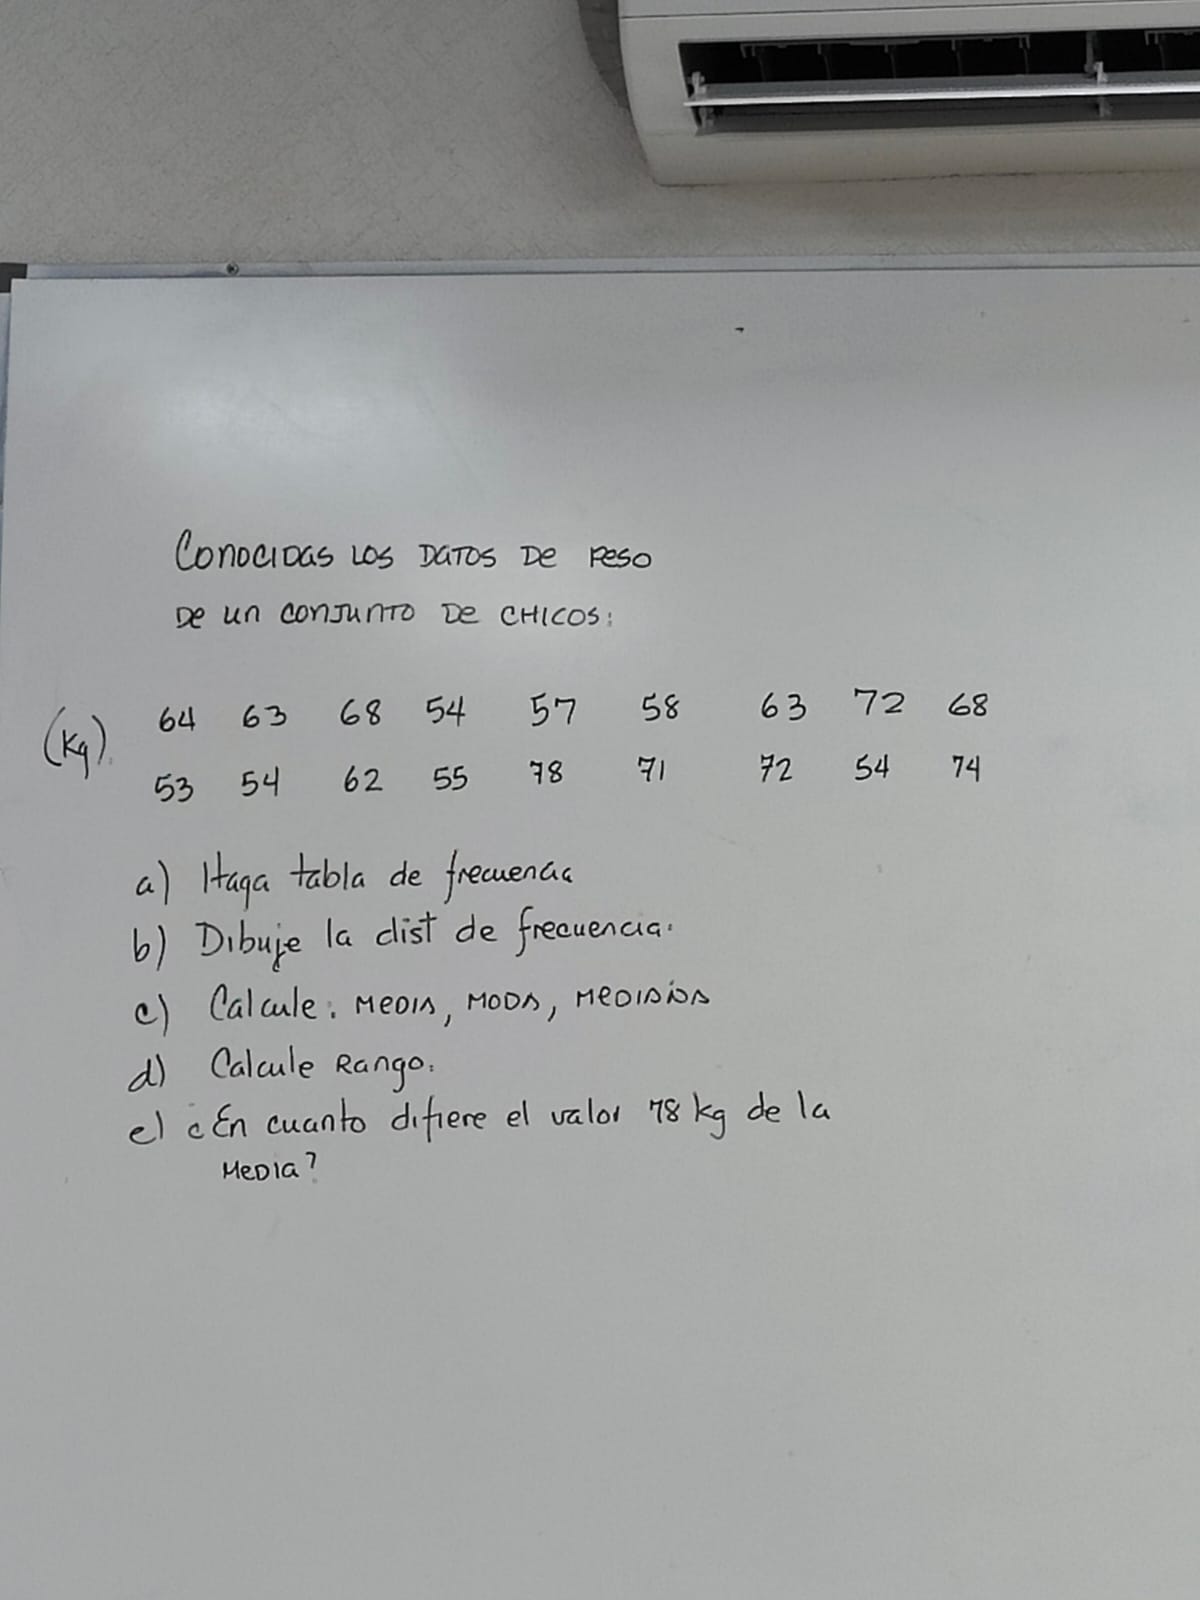 CONOCIDAS LOS DATOS DE PESO
DE UN CONJUNTO DE CHICOS:
(Kg). 64 63 68 54 57 58 63 72 68
53 54 62 55 78 71 72 54 74
a) Haga tabla de frecuencia
b) Dibuje la dist de frecuencia.
c) Calcule: MEDIA, MODA, MEDIANA
d) Calcule Rango.
e) ¿En cuanto difiere el valor 78 kg de la
MEDIA?